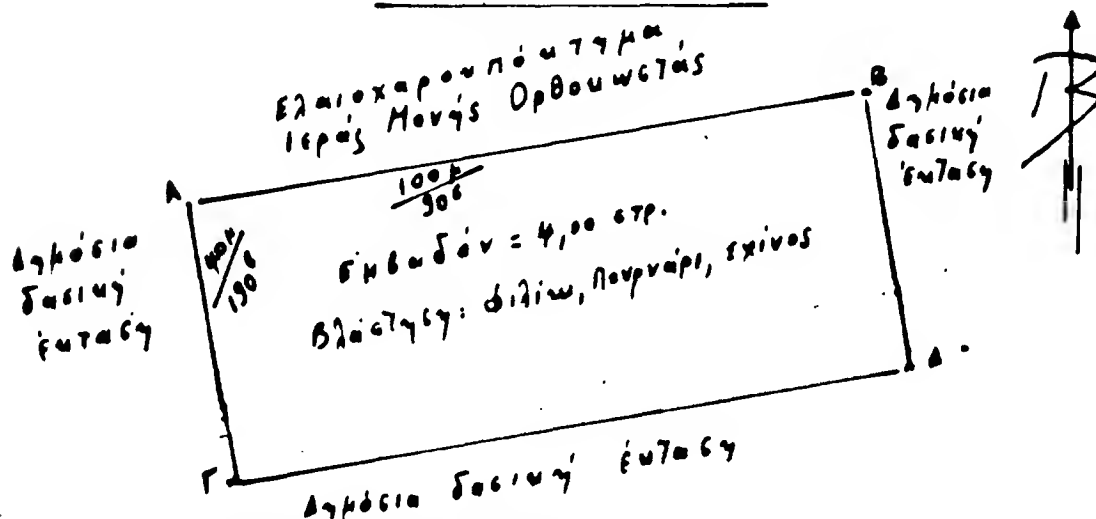 Ελαιοχαρουπόκτημα
Ιεράς Μονής Ορθοκωστάς
Β
Δημόσια
δασική
έκταση
Α
100μ
90ς
Δημόσια
δασική
έκταση
40μ
190ς
Εμβαδόν = 4,00 στρ.
Βλάστηση: Φιλίκι, Πουρνάρι, σχίνος
Δ
Γ
Δημόσια δασική έκταση